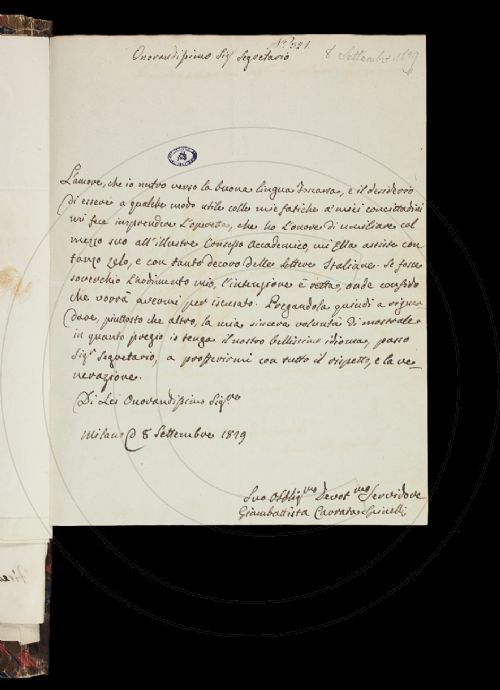 N.º 321.
8 Settembre 1819
Onorandissimo Sig.r Segretario
L'amore, che io nutro verso la buona lingua Toscana, e il desiderio
di essere a qualche modo utile colle mie fatiche a' miei concittadini
mi fece imprendere l'operetta, che ho l'onore di umiliare col
mezzo suo all'illustre Consesso Accademico, cui Ella assiste con
tanto zelo, e con tanto decoro delle Lettere Italiane. Se fosse
soverchio l'ardimento mio, l'intenzione è retta, onde confido
che vorrà avermi per iscusato. Pregandola quindi a riguar-
dare, piuttosto che altro, la mia sincera volontà di mostrare
in quanto pregio io tenga il nostro bellissimo idioma, passo
Sig.r Segretario, a profferirmi con tutto il rispetto, e la ve-
nerazione.
Di Lei Onorandissimo Sig.re
Milano 8 Settembre 1819
Suo Obblig.mo Devot.mo Servidore
Giambattista Spinelli